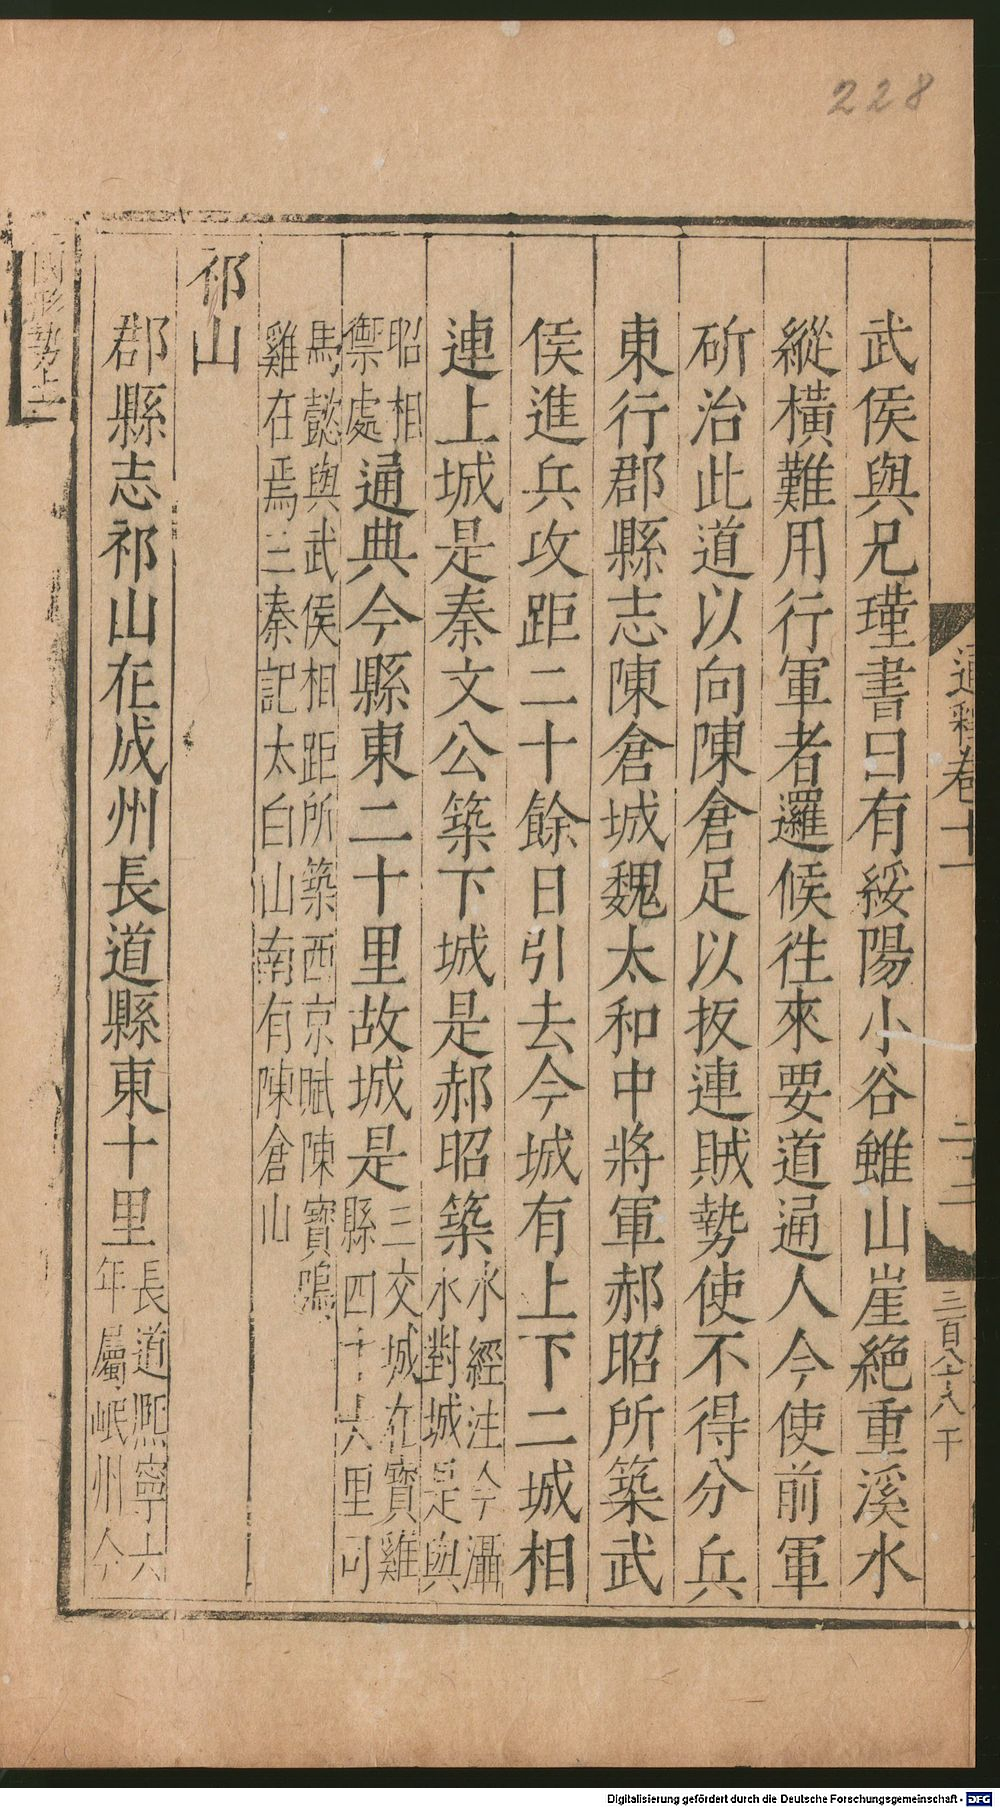 228
通釋卷十一
二十二
三百八十八 干
武侯與兄瑾書曰有綏陽小谷雖山崖絶重溪水
縱橫難用行軍者邏候徃來要道通人今使前軍
斫治此道以向陳倉足以扳連賊勢使不得分兵
東行郡縣志陳倉城魏太和中將軍郝昭所築武
侯進兵攻距二十餘日引去今城有上下二城相
連上城是秦文公築下城是郝昭築
水經注今灄
水對城是與
昭相
禦處
通典今縣東二十里故城是
三交城在寶雞
縣四十六里司
馬懿與武侯相距所築西京賦陳寶鳴
雞在焉三秦記太白山南有陳倉山
祁山
郡縣志祁山在成州長道縣東十里
長道熈寧六
年屬岷州今
形勢上
Digitalisierung gefördert durch die Deutsche Forschungsgemeinschaft - DFG